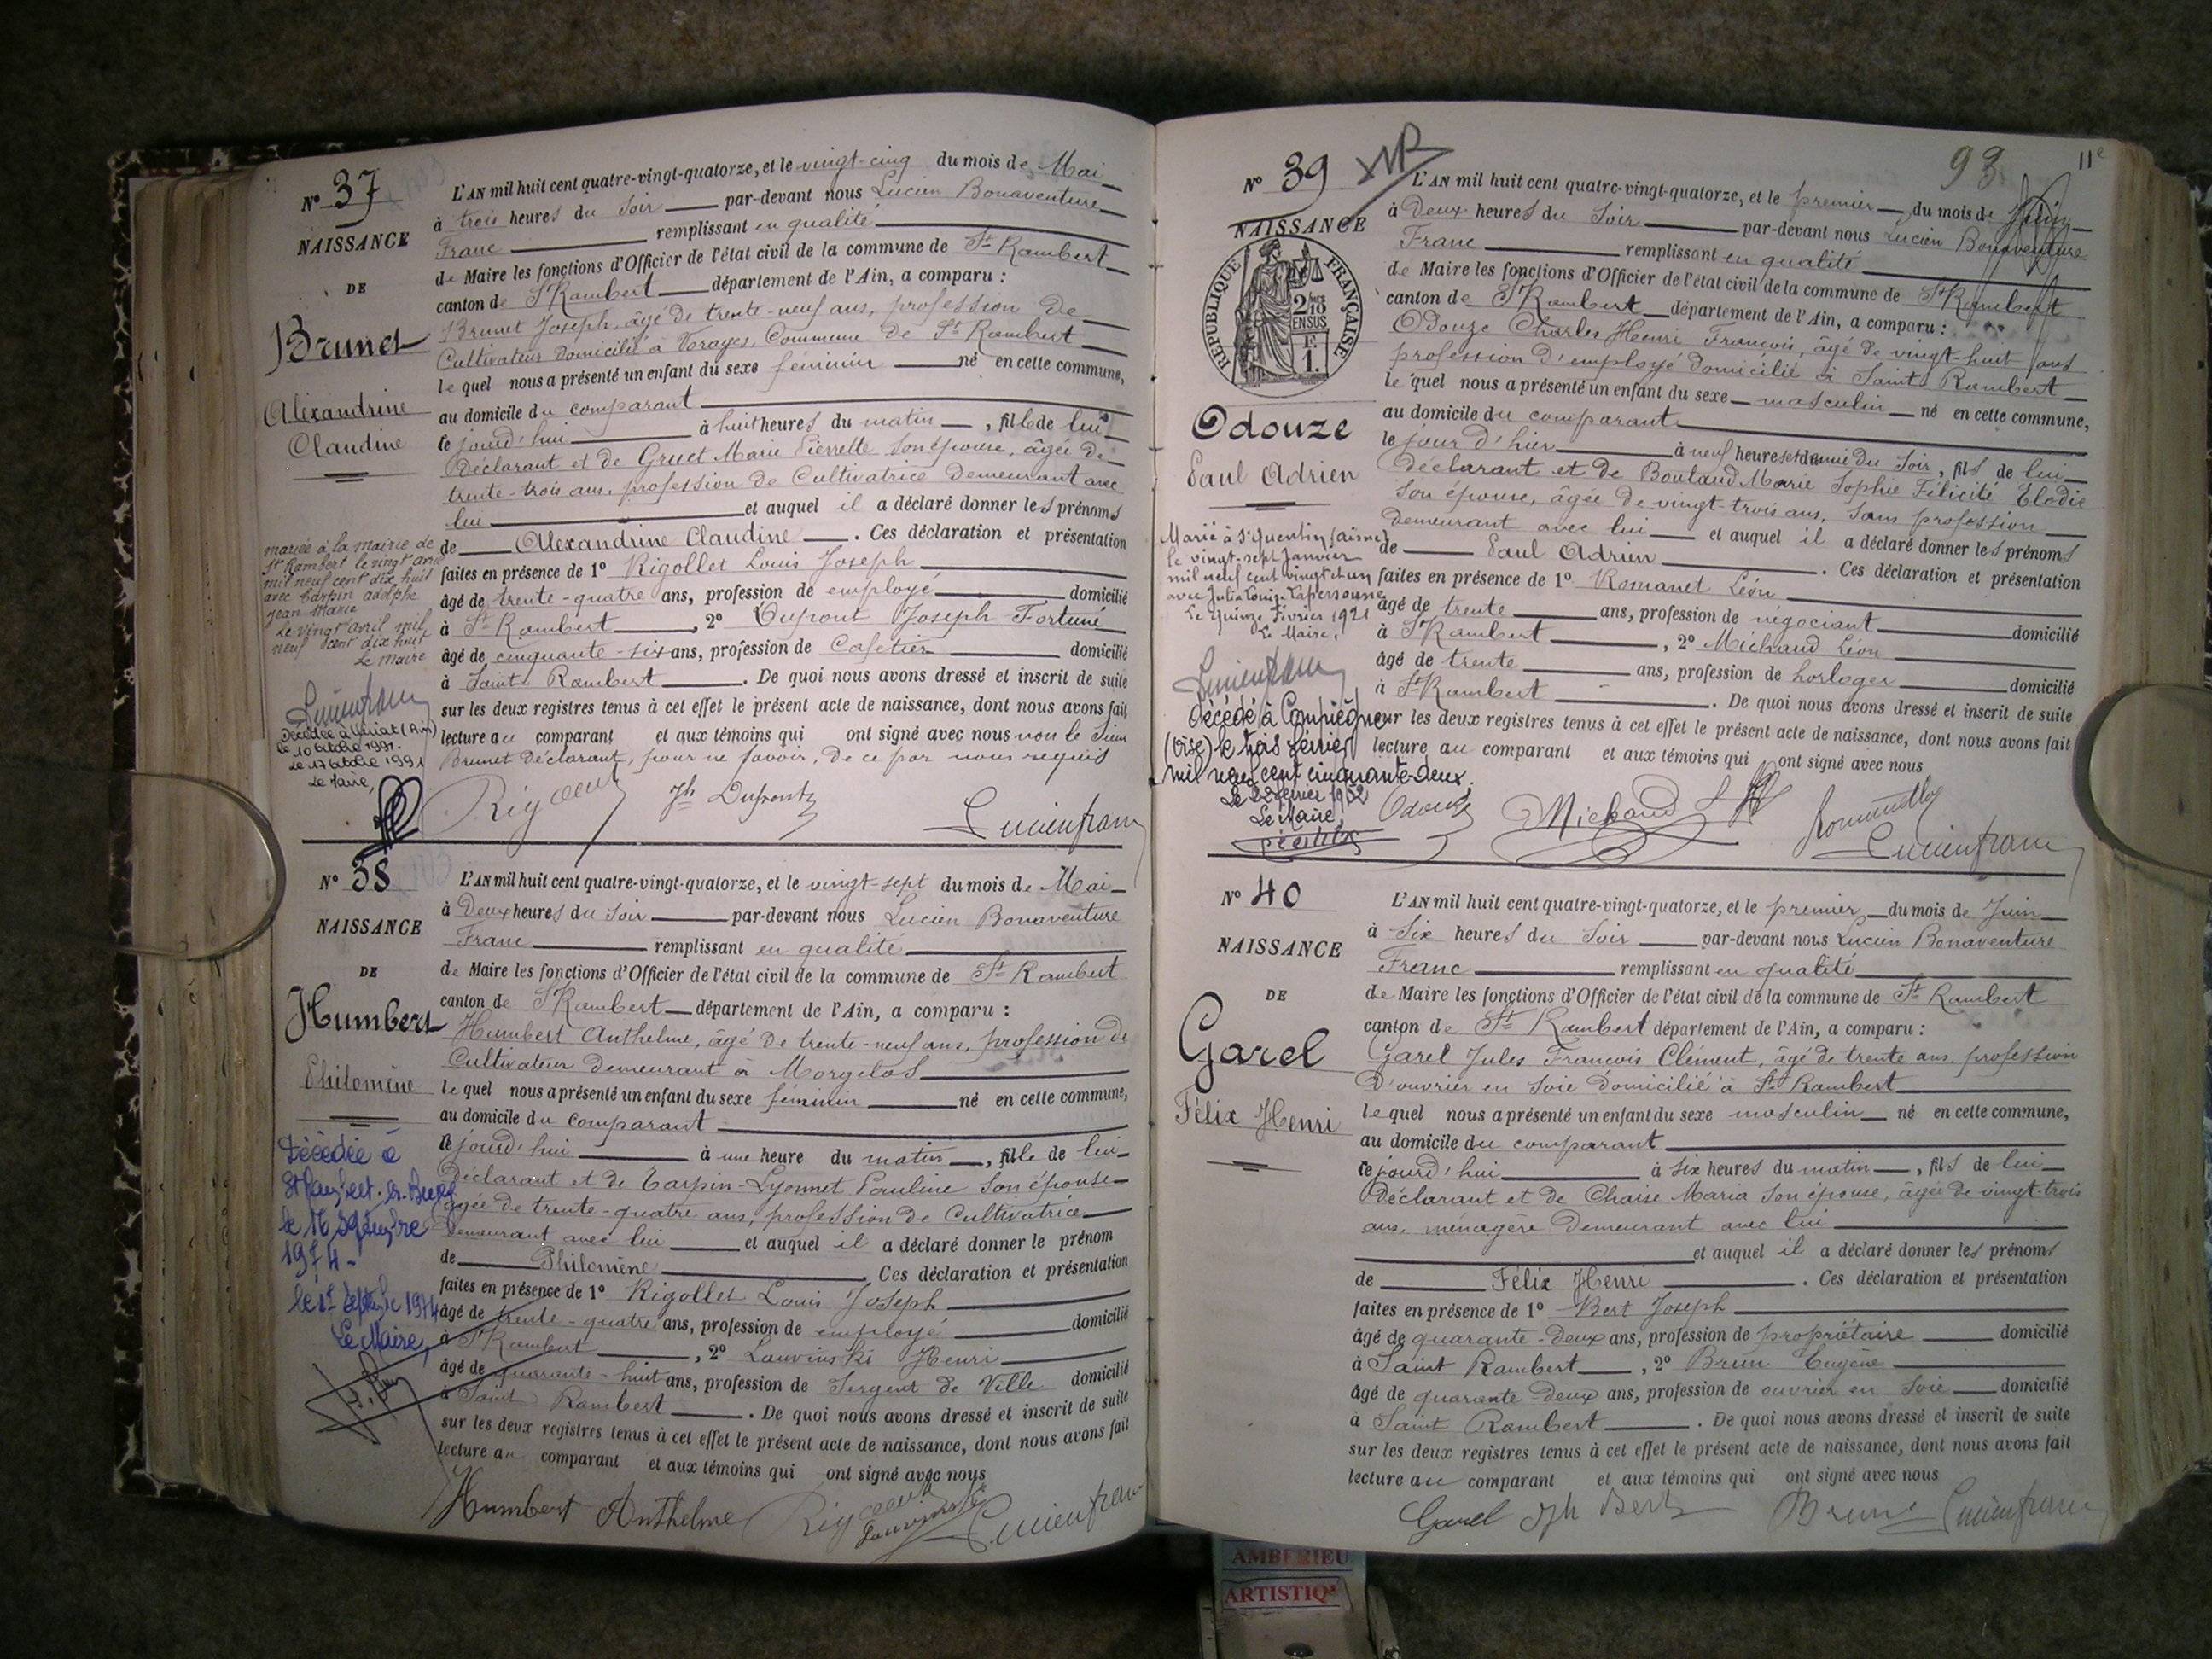 N° 37
NAISSANCE
DE
Brunet
Alexandrine
Claudine
mariée à la mairie de
St Rambert le vingt avril
mil neuf cent dix huit
avec Carpin adolphe
Jean Marie
Le vingt avril mil
neuf cent dix huit
Le Maire
Lucien franc
Décédée à Viriat (Ain)
le 10 octobre 1991.
Le 17 octobre 1991
Le Maire,
L'AN mil huit cent quatre-vingt-quatorze, et le vingt-cinq du mois de Mai
à trois heures du soir par-devant nous Lucien Bonaventure
Franc remplissant en qualité
de Maire les fonctions d'Officier de l'état civil de la commune de St Rambert
canton de St Rambert département de l'Ain, a comparu :
Brunet Joseph, âgé de trente-neuf ans, profession de
Cultivateur domicilié à Vorages, Commune de St Rambert
lequel nous a présenté un enfant du sexe féminin né en cette commune,
au domicile du comparant
le jourd'hui à huit heures du matin, fille de lui
déclarant et de Gruet Marie Pierrette son épouse, âgée de
trente-trois ans, profession de Cultivatrice demeurant avec
lui et auquel il a déclaré donner les prénoms
de Alexandrine Claudine. Ces déclaration et présentation
faites en présence de 1° Rigollet Louis Joseph
âgé de trente-quatre ans, profession de employé domicilié
à St Rambert, 2° Dupont Joseph Fortuné
âgé de cinquante-six ans, profession de Cafetier domicilié
à Saint Rambert. De quoi nous avons dressé et inscrit de suite
sur les deux registres tenus à cet effet le présent acte de naissance, dont nous avons fait
lecture au comparant et aux témoins qui ont signé avec nous non le sieur
Brunet déclarant, pour ne savoir, de ce par nous requis
Rigollet Jh Dupont Lucien franc
N° 38
NAISSANCE
DE
Humbert
Philomène
Décédée à
St Rambert-en-Bugey
le septembre
1974-
le septembre 1974
Le Maire,
L'AN mil huit cent quatre-vingt-quatorze, et le vingt-sept du mois de Mai
à Deux heures du soir par-devant nous Lucien Bonaventure
Franc remplissant en qualité
de Maire les fonctions d'Officier de l'état civil de la commune de St Rambert
canton de St Rambert département de l'Ain, a comparu :
Humbert Anthelme, âgé de trente-neuf ans, profession de
Cultivateur demeurant à Morgelas
lequel nous a présenté un enfant du sexe féminin né en cette commune,
au domicile du comparant
le jourd'hui à une heure du matin, fille de lui
déclarant et de Carpin-Lyonnet Pauline son épouse
âgée de trente-quatre ans, profession de Cultivatrice
demeurant avec lui et auquel il a déclaré donner le prénom
de Philomène. Ces déclaration et présentation
faites en présence de 1° Rigollet Louis Joseph
âgé de trente-quatre ans, profession de employé domicilié
à St Rambert, 2° Louvinski Henri
âgé de quarante-huit ans, profession de Sergent de Ville domicilié
à Saint Rambert. De quoi nous avons dressé et inscrit de suite
sur les deux registres tenus à cet effet le présent acte de naissance, dont nous avons fait
lecture au comparant et aux témoins qui ont signé avec nous
Humbert Anthelme Rigollet Louvinski Lucien franc
93
11e
N° 39
NAISSANCE
RÉPUBLIQUE FRANÇAISE
2/10
EN SUS
F.
1.
Odouze
Paul Adrien
Marié à St Quentin (aisne)
le vingt-sept Janvier
mil neuf cent vingt et un
avec Julia Louise Lapersonne
Le quinze Février 1921
Le Maire,
Lucien franc
Décédé à Compiègne
(Oise) le trois février
mil neuf cent cinquante-deux.
Le 22 février 1952
Le Maire,
L'AN mil huit cent quatre-vingt-quatorze, et le premier du mois de Juin
à Deux heures du soir par-devant nous Lucien Bonaventure
Franc remplissant en qualité
de Maire les fonctions d'Officier de l'état civil de la commune de St Rambert
canton de St Rambert département de l'Ain, a comparu :
Odouze Charles Henri François, âgé de vingt-huit ans
profession d'employé domicilié à Saint Rambert
lequel nous a présenté un enfant du sexe masculin né en cette commune,
au domicile du comparant
le jour d'hier à neuf heures et demie du soir, fils de lui
déclarant et de Bouland Marie Sophie Félicité Elodie
son épouse, âgée de vingt-trois ans, sans profession
demeurant avec lui et auquel il a déclaré donner les prénoms
de Paul Adrien. Ces déclaration et présentation
faites en présence de 1° Romanet Léon
âgé de trente ans, profession de négociant domicilié
à St Rambert, 2° Michaud Léon
âgé de trente ans, profession de horloger domicilié
à St Rambert. De quoi nous avons dressé et inscrit de suite
sur les deux registres tenus à cet effet le présent acte de naissance, dont nous avons fait
lecture au comparant et aux témoins qui ont signé avec nous
Odouze Michaud L Romanet Lucien franc
N° 40
NAISSANCE
DE
Garel
Félix Henri
L'AN mil huit cent quatre-vingt-quatorze, et le premier du mois de Juin
à Six heures du soir par-devant nous Lucien Bonaventure
Franc remplissant en qualité
de Maire les fonctions d'Officier de l'état civil de la commune de St Rambert
canton de St Rambert département de l'Ain, a comparu :
Garel Jules François Clément, âgé de trente ans, profession
d'ouvrier en soie domicilié à St Rambert
lequel nous a présenté un enfant du sexe masculin né en cette commune,
au domicile du comparant
le jourd'hui à six heures du matin, fils de lui
déclarant et de Chaise Maria son épouse, âgée de vingt-trois
ans, ménagère demeurant avec lui
et auquel il a déclaré donner les prénoms
de Félix Henri. Ces déclaration et présentation
faites en présence de 1° Bert Joseph
âgé de quarante-deux ans, profession de propriétaire domicilié
à Saint Rambert, 2° Brun Eugène
âgé de quarante-deux ans, profession de ouvrier en soie domicilié
à Saint Rambert. De quoi nous avons dressé et inscrit de suite
sur les deux registres tenus à cet effet le présent acte de naissance, dont nous avons fait
lecture au comparant et aux témoins qui ont signé avec nous
Garel Jph Bert Brun Lucien franc
AMBERIEU
ARTISTIQ